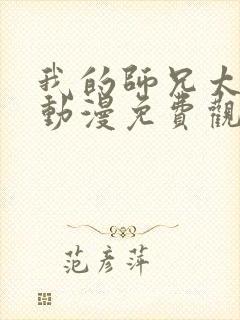 我的師兄大
動漫免費觀
范彥萍